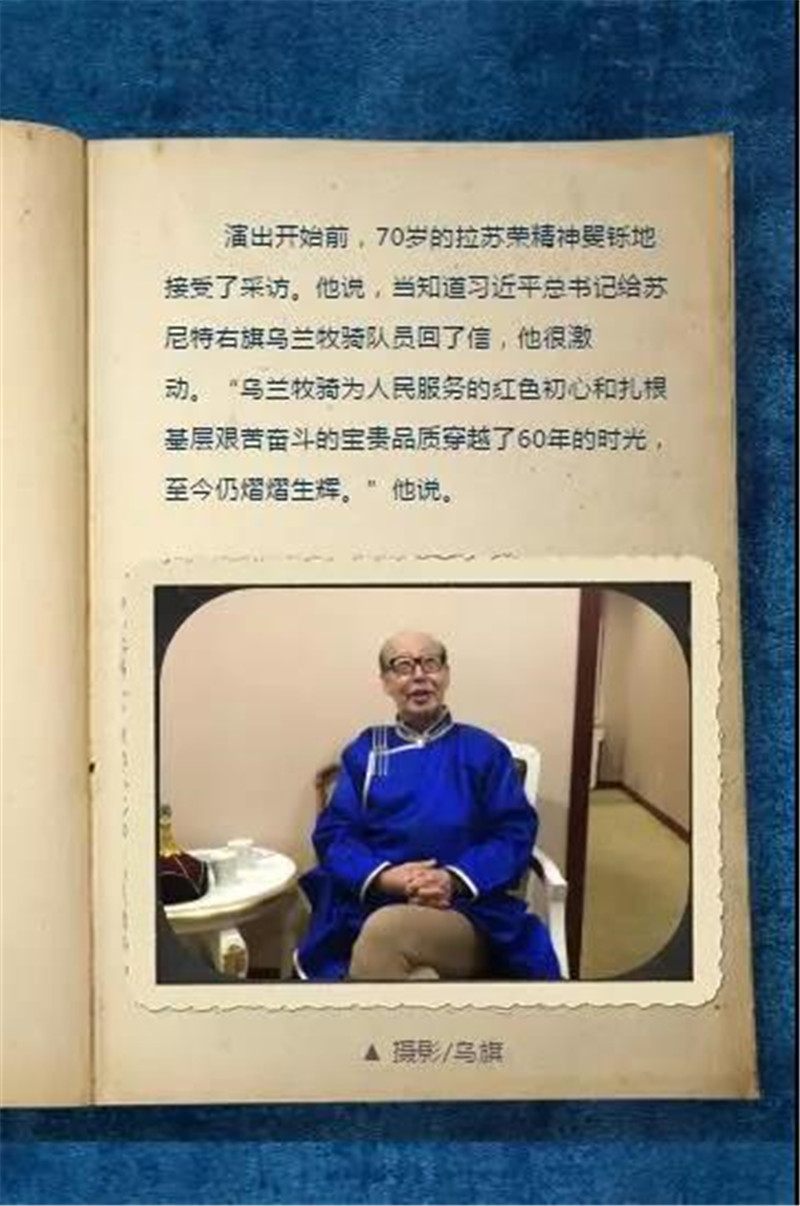 演出开始前，70岁的拉苏荣精神矍铄地
接受了采访。他说，当知道习近平总书记给苏
尼特右旗乌兰牧骑队员回了信，他很激
动。“乌兰牧骑为人民服务的红色初心和扎根
基层艰苦奋斗的宝贵品质穿越了60年的时光，
至今仍熠熠生辉。”他说。
▲ 摄影/乌旗